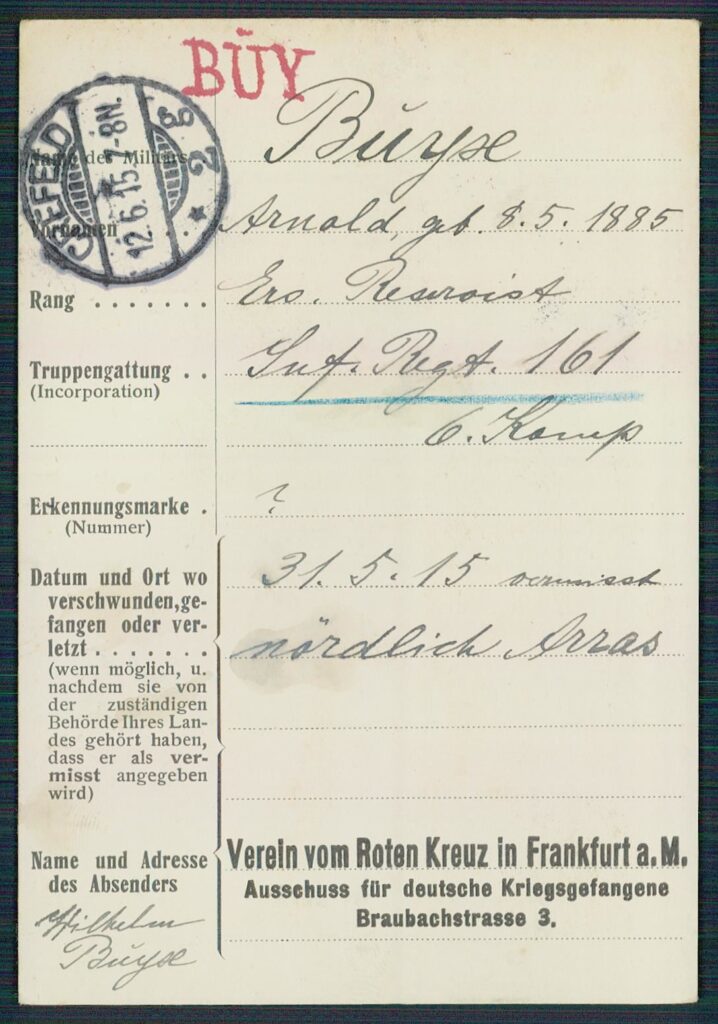 BÜY
CREFELD
12.6.15.7-8N.
* 2 g
Name des Militärs
Buyse
Vornamen
Arnold, geb. 8.5. 1885
Rang . . . . . . .
Ers. Reservist
Truppengattung . .
(Incorporation)
Inf. Regt. 161
6. Komp
Erkennungsmarke .
(Nummer)
?
Datum und Ort wo
verschwunden, ge-
fangen oder ver-
letzt . . . . . . .
(wenn möglich, u.
nachdem sie von
der zuständigen
Behörde Ihres Lan-
des gehört haben,
dass er als ver-
misst angegeben
wird)
31. 5. 15 vermisst
nördlich Arras
Name und Adresse
des Absenders
Wilhelm
Buyse
Verein vom Roten Kreuz in Frankfurt a. M.
Ausschuss für deutsche Kriegsgefangene
Braubachstrasse 3.